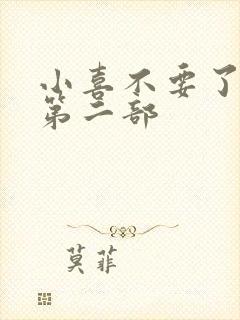 小喜不要了
第二部
莫菲